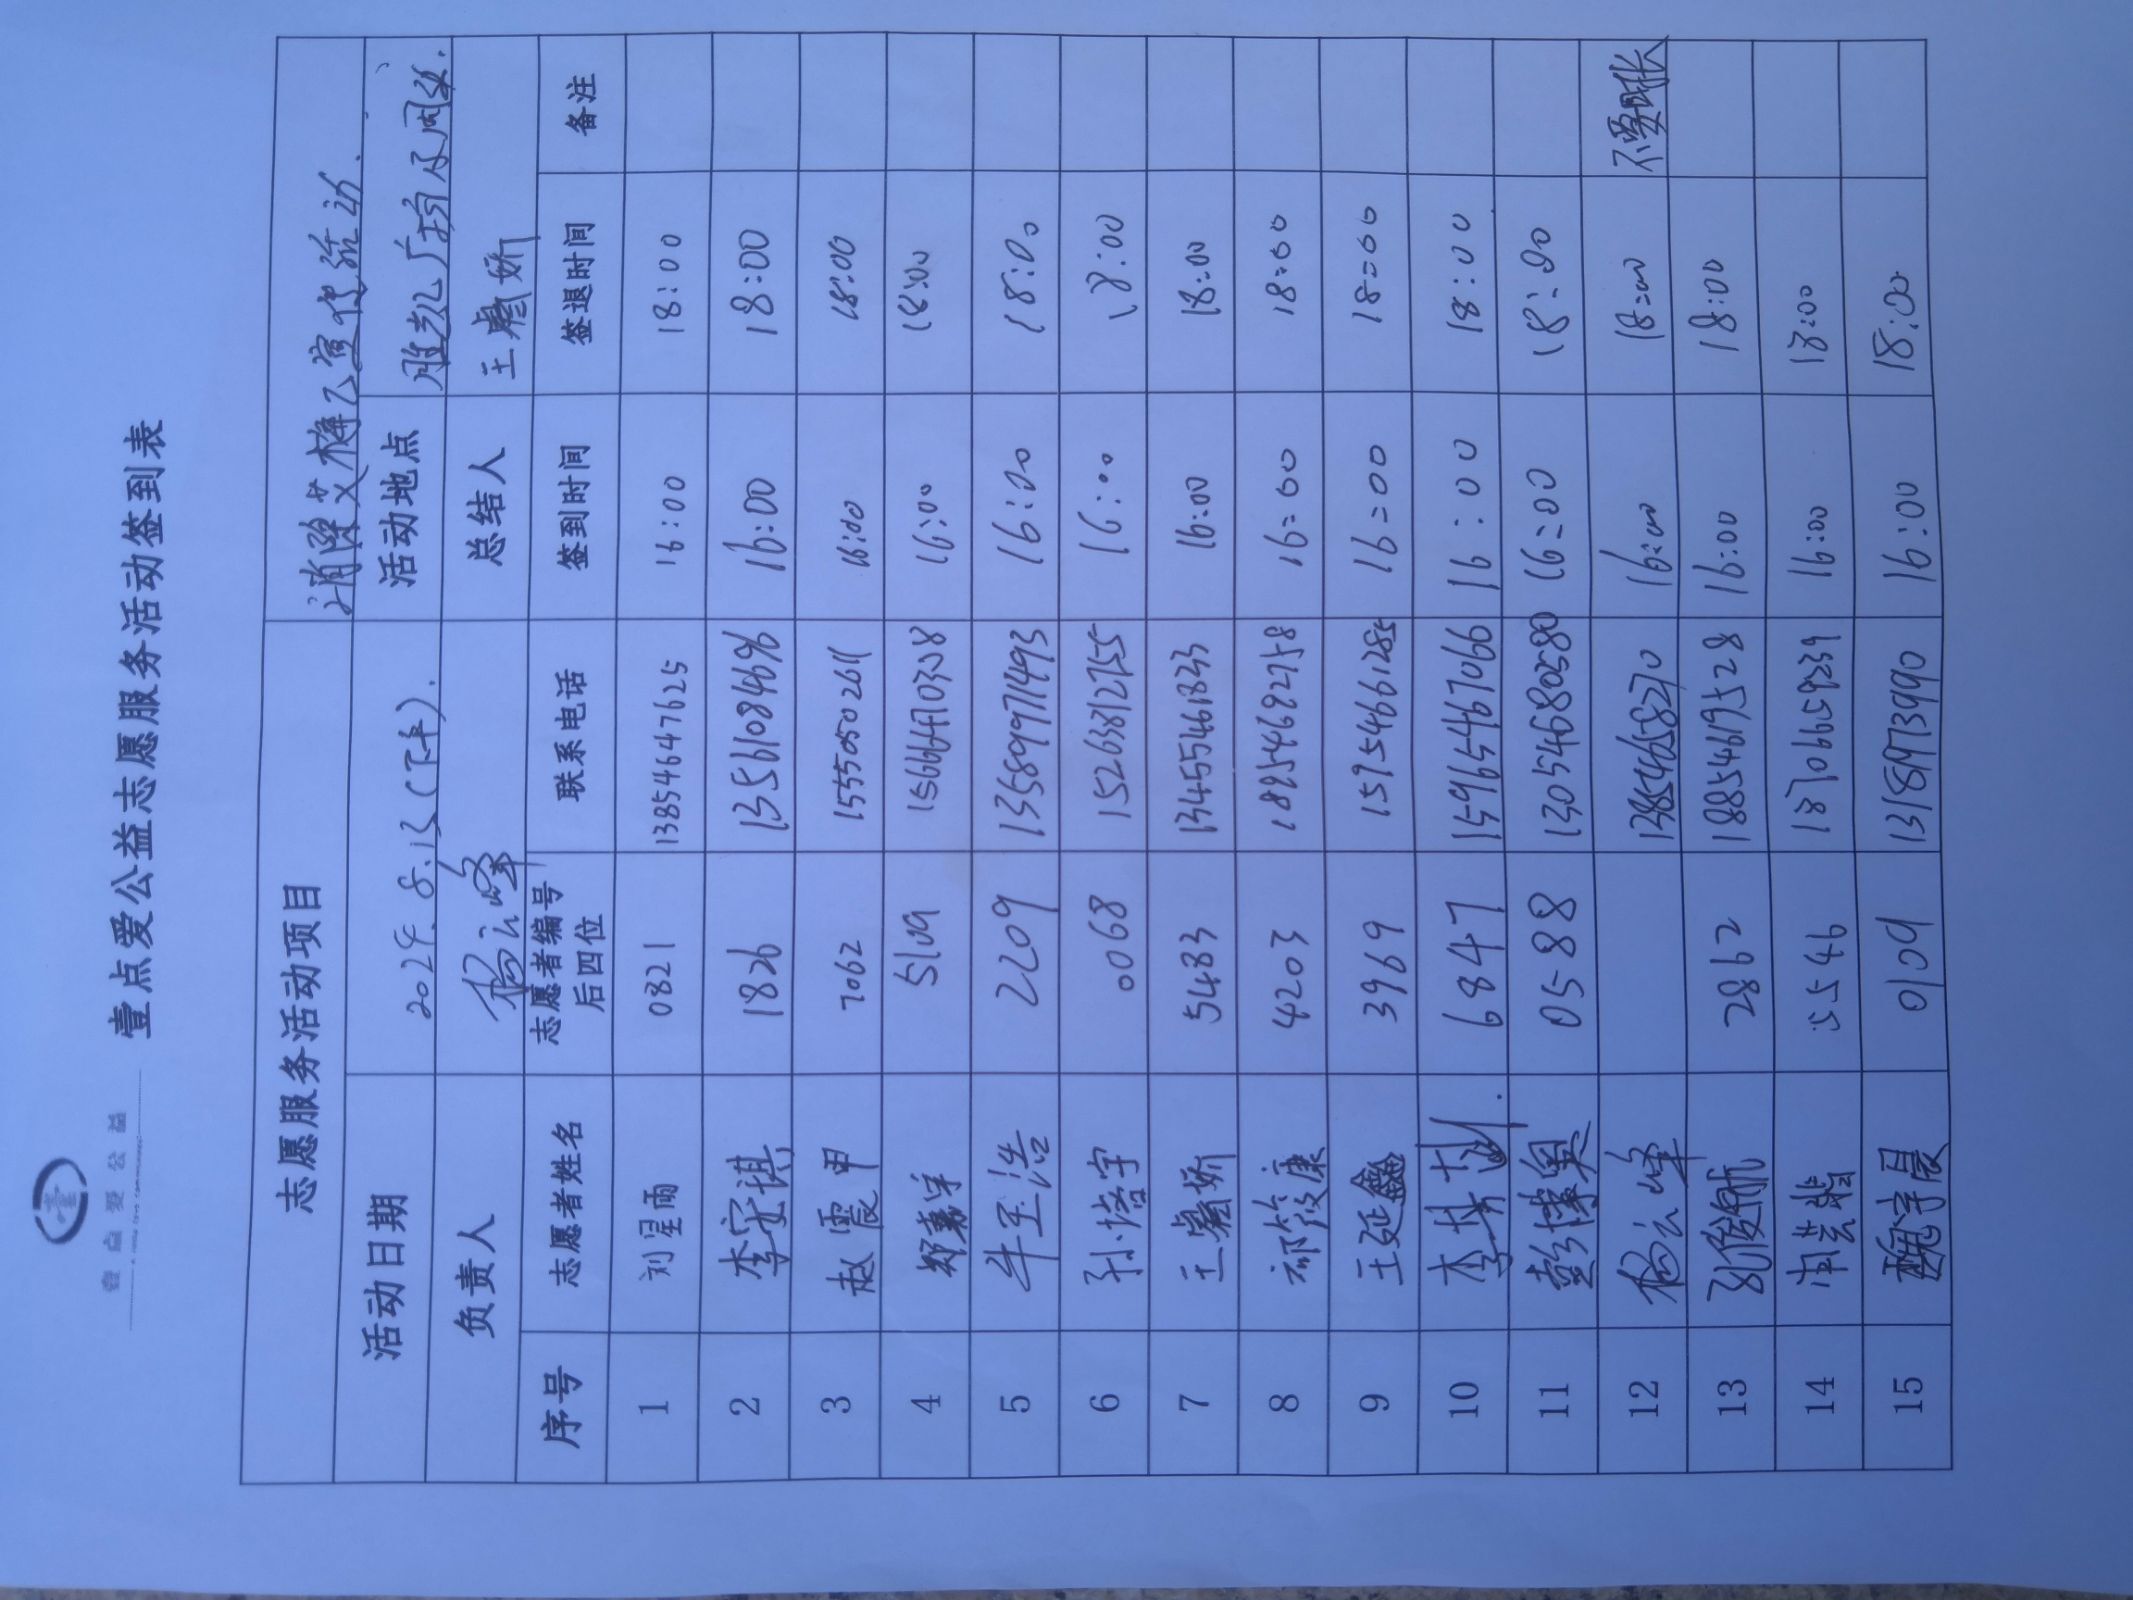 壹点爱公益
壹点爱公益志愿服务活动签到表
志愿服务活动项目 消除艾梅乙宣传活动.
活动日期 2024.8.13(下午). 活动地点 胜凯广场及周边.
负责人 杨云峰 总结人 王嵛娇
序号 志愿者姓名 志愿者编号后四位 联系电话 签到时间 签退时间 备注
1 刘星雨 0821 13854647625 16:00 18:00
2 李安琪 1826 13561084696 16:00 18:00
3 赵震甲 7062 15550502611 16:00 18:00
4 郑嘉羊 5109 15666470338 16:00 18:00
5 牛玉浩 2209 13589971493 16:00 18:00
6 孙培宇 0068 15263812755 16:00 18:00
7 王嵛娇 5483 13455461833 16:00 18:00
8 祁筱康 4203 18254682758 16:00 18:00
9 王延鑫 3969 15954661285 16:00 18:00
10 李其澍. 6847 15965467066 16:00 18:00
11 彭博奥 0588 13054680580 16:00 18:00
12 杨云峰 13854658270 16:00 18:00 不要时长
13 孔俊航 2862 18854619528 16:00 18:00
14 闫芸翡 5546 18706659239 16:00 18:00
15 魏宇晨 0109 13181973990 16:00 18:00